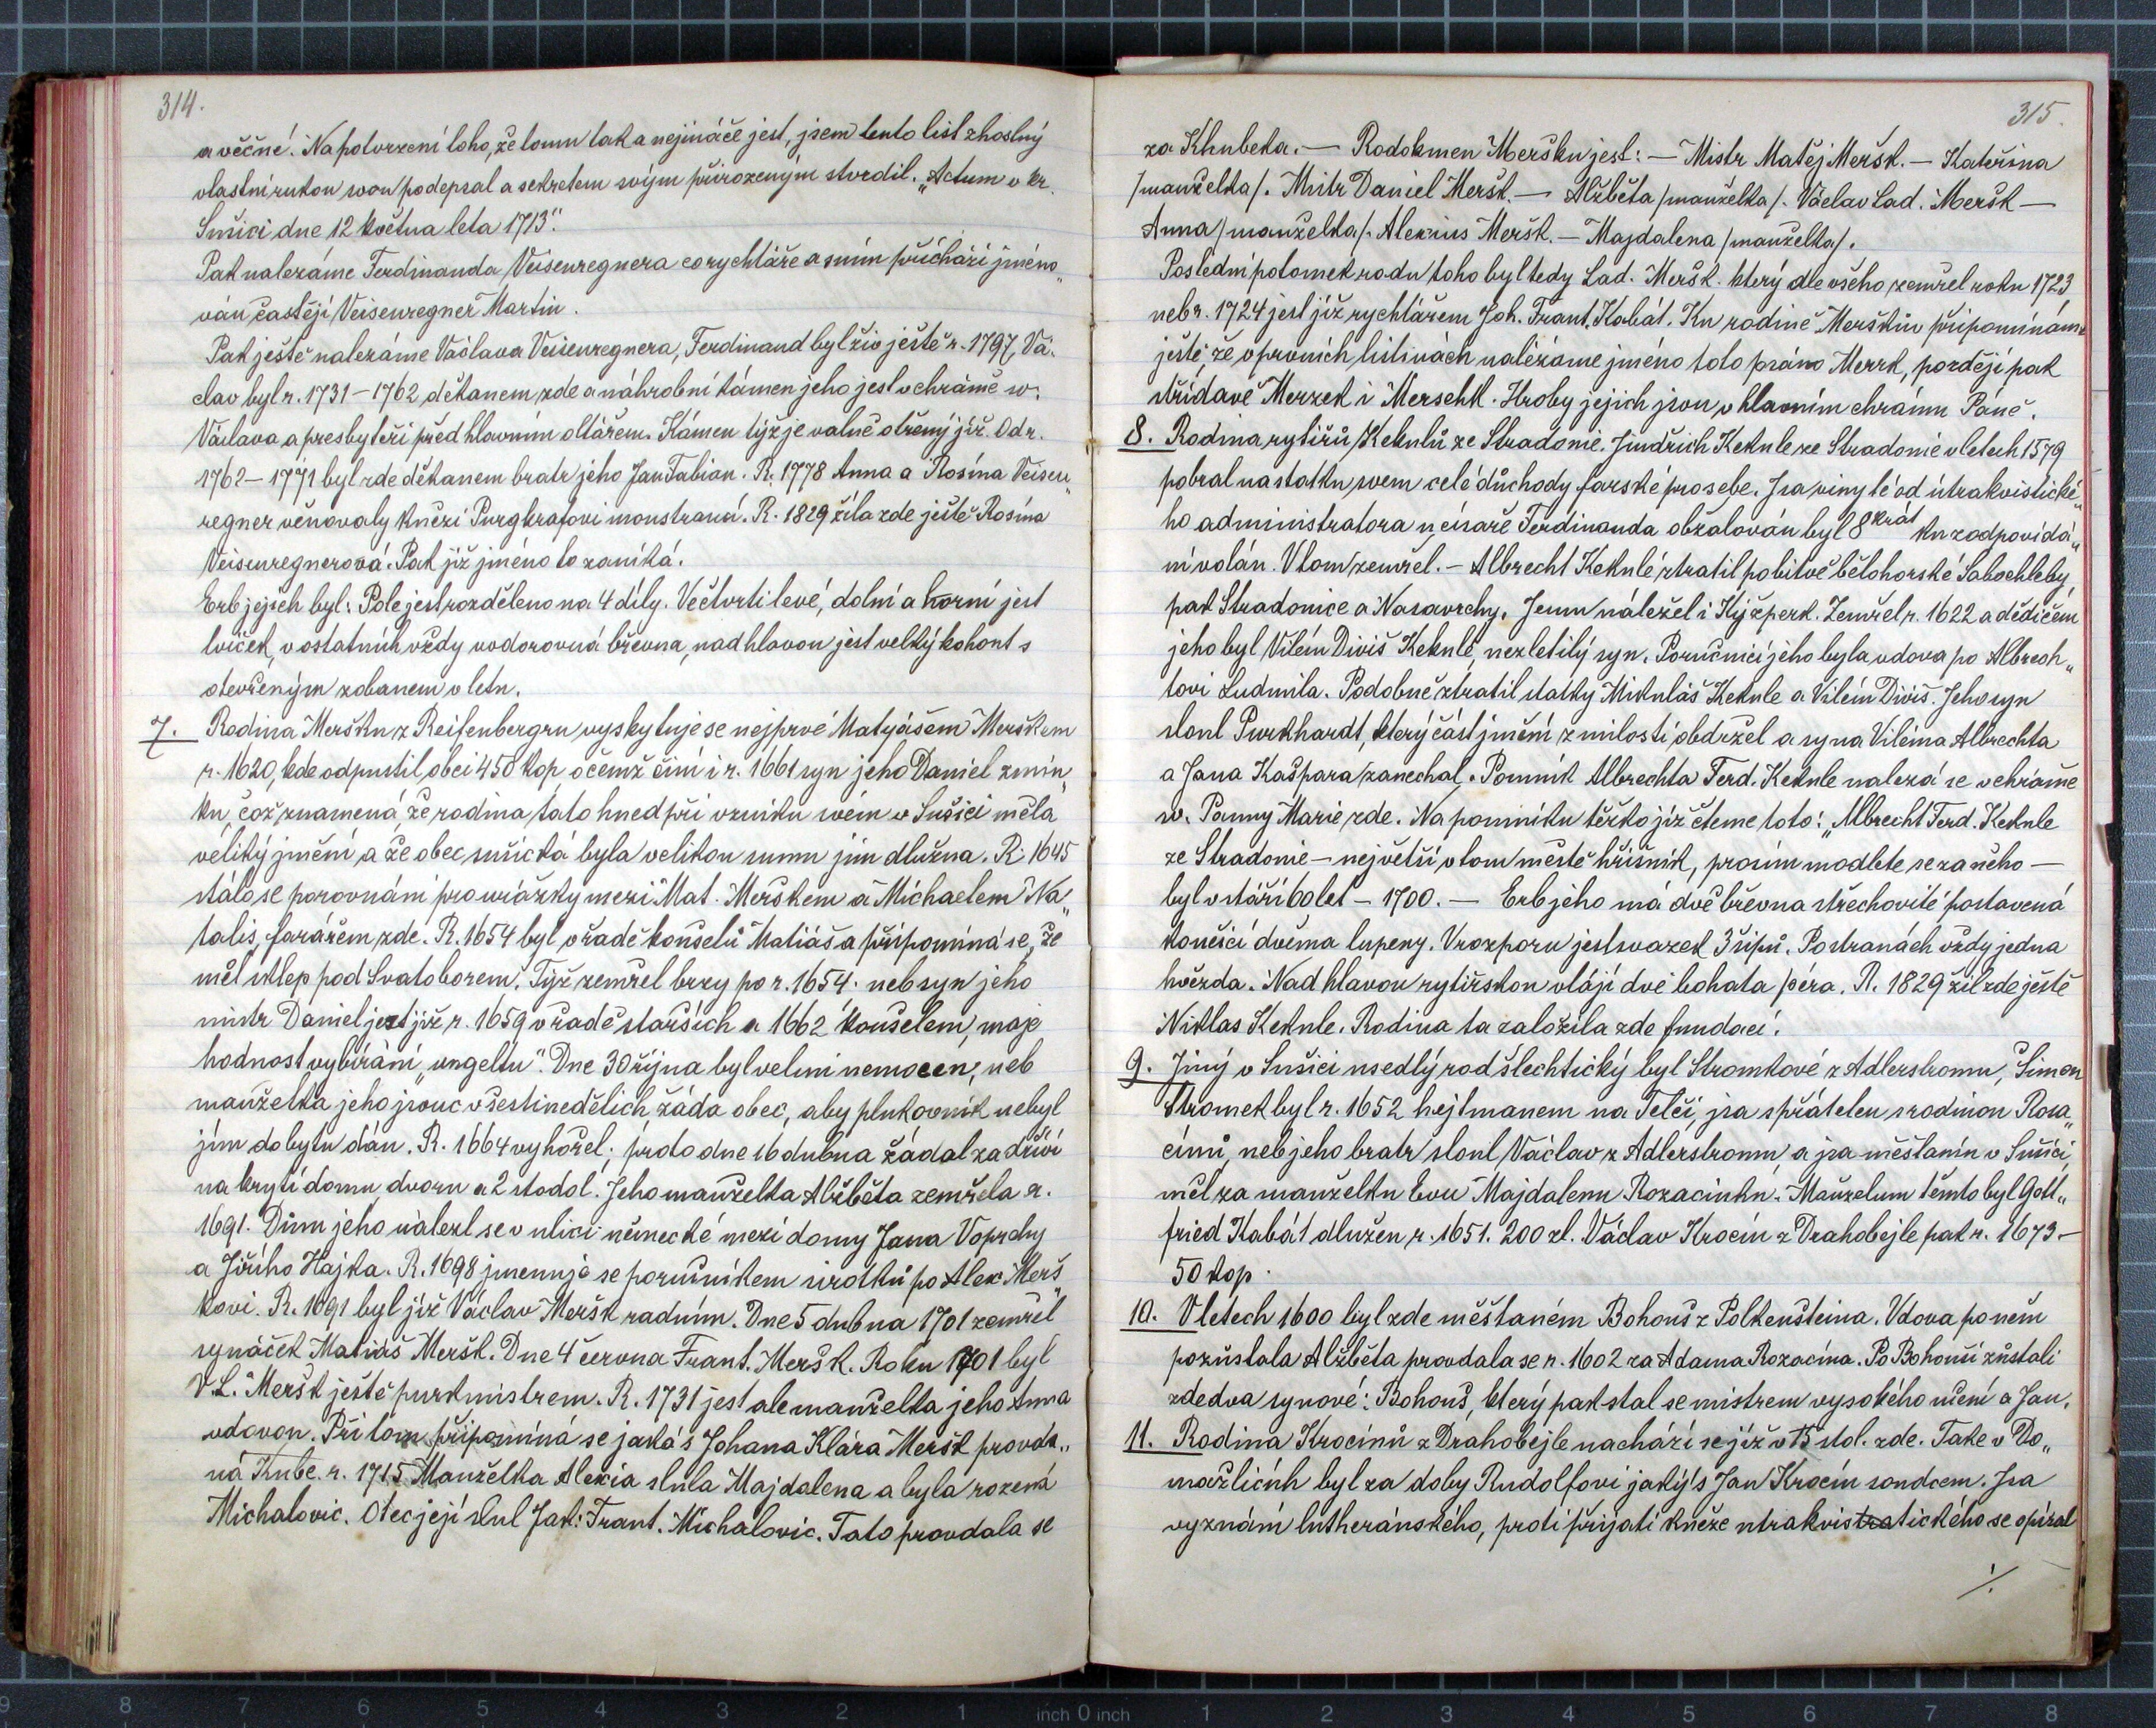 314.
a věčné. Na potvrzení toho, že tomu tak a nejináče jest, jsem tento list zhostný
vlastní rukou svou podepsal a sekretem svým přirozeným stvrdil. „Actum v kr.
Sušici dne 12 května leta 1713“.
Pak nalezáme Ferdinanda Veisenregnera co rychtáře a s ním přichází jméno„
ván častěji Veisenregner Martin.
Pak ještě nalezáme Václava Veisenregnera, Ferdinand byl živ ještě r. 1797, Vá„
clav byl r. 1731–1762 děkanem zde a náhrobní kámen jeho jest v chrámě sv.
Václava a presbyteři před hlavním oltářem. Kámen týž je valně otřený již. Od r.
1762–1771 byl zde děkanem bratr jeho Jan Fabian. R. 1778 Anna a Rosina Veisen„
regner věnovaly knězi Purgkrafovi monstranci. R. 1829 žila zde ještě Rosina
Veisenregnerová. Pak již jméno to zaniká.
Erb jejich byl: Pole jest rozděleno na 4 díly. Ve čtvrti levé, dolní a horní jest
lvíček, v ostatních vždy vodorovná břevna, nad hlavou jest velký kohout s
otevřeným zobanem v letu.
7. Rodina Mersku z Reifenbergru vyskytuje se nejprvé Matyášem Merškem
r. 1620, kde odpustil obci 450 kop, o čemž činí i r. 1661 syn jeho Daniel zmín„
ku, což znamená, že rodina tato hned při vzniku svém v Sušici měla
veliký jmění a že obec sušická byla velikou sumu jim dlužna. R. 1645
stálo se porovnání pro svážky mezi Mat. Merškem a Michaelem Na„
talis, farářem zde. R. 1654 byl v řadě konšelů Matiáš a připomíná se, že
měl sklep pod Svatoborem. Týž zemřel brzy po r. 1654. neb syn jeho
mistr Daniel jest již r. 1659 v řadě starších a 1662 konšelem, maje
hodnost vybírání „ungeltu“. Dne 30 října byl velmi nemocen, neb
manželka jeho jsouc v šestinedělích žádá obec, aby plukovník nebyl
jim do bytu dán. R. 1664 vyhořel; proto dne 16 dubna žádal za dříví
na krytí domu dvoru a 2 stodol. Jeho manželka Alžběta zemřela r.
1691. Dům jeho nalezl se v ulici německé mezi domy Jana Voprchy
a Jiřího Hajka. R. 1698 jmenuje se poručníkem sirotků po Alex. Merš„
kovi. R. 1691 byl již Václav Meršk radním. Dne 5 dubna 1701 zemřel
synáček Matiáš Meršk. Dne 4 června Frant. Meršk. Roku 1701 byl
V. L. Meršk ještě purkmistrem. R. 1731 jest ale manželka jeho Anna
vdovou. Při tom připomíná se jaká s Johana Klára Meršk provda„
ná Kube. r. 1715 Manželka Alexia slula Majdalena a byla rozená
Michalovic. Otec její slul Jak: Frant. Michalovic. Tato provdala se
315.
za Khubeka. — Rodokmen Meršku jest: — Mistr Matěj Meršk. — Kateřina
/manželka/. Mistr Daniel Meršk. — Alžběta /manželka/. Václav Lad. Meršk —
Anna /manželka/. Alexius Meršk. — Majdalena /manželka/.
Poslední potomek rodu toho byl tedy Lad. Meršk. který dle všeho zemřel roku 1723
neb r. 1724 jest již rychtářem Joh. Frant. Kabát. Ku rodině Merškův připomínáme
ještě, že v prvních listinách nalézáme jméno toto psáno Merrk, později pak
střídavě Merzek i Merschk. Hroby jejich jsou v hlavním chrámu Páně.
8. Rodina rytířů Kekulů ze Stradonic. Jindřich Kekule ze Stradonic v letech 1579
pobral na statku svem celé důchody farské pro sebe. Jsa viny té od utrakvistické„
ho administratora u císaře Ferdinanda obžalován byl 8krát ku zodpovídá„
ní volán. V tom zemřel. — Albrecht Kekulé ztratil po bitvě bělohorské Sabochleby
pak Stradonice a Nasavrchy. Jemu náležel i Kyšperk. Zemřel r. 1622 a dědičem
jeho byl Vilém Diviš Kekulé, nezletilý syn. Poručnicí jeho byla vdova po Albrech„
tovi Ludmila. Podobně ztratil statky Mikuláš Kekule a Vilém Diviš. Jeho syn
slonl Purkhardt, který část jmění z milosti obdržel a syna Viléma Albrechta
a Jana Kašpara zanechal. Pomník Albrechta Ferd. Kekule nalezá se v chrámě
sv. Panny Marie zde. Na pomníku těžko již čteme toto: „Albrecht Ferd. Kekule
ze Stradonic — největší v tom městě hříšník, prosím modlete se za něho —
byl v stáří 60 let – 1700. — Erb jeho má dvě břevna střechovitě postavená
končící dvěma lupeny. V rozporu jest svazek 3 šípů. Po stranách vždy jedna
hvězda. Nad hlavou rytířskou vlájí dvě bohata péra. R. 1829 žil zde ještě
Niklas Kekule. Rodina ta založila zde fundaci.
9. Jiný v Sušici usedlý rod šlechtický byl Stromkové z Adlerstromu, Šimon
Stromek byl r. 1652 hejtmanem na Telči, jsa spřátelen s rodinou Roza„
cínů, neb jeho bratr slonl Václav z Adlerstromu, a jsa měšťanín v Sušici,
měl za manželku Evu Majdalenu Rozacinku. Manželum těmto byl Gott„
fried Kabát dlužen r. 1651. 200 zl. Václav Krocín z Drahobejle pak r. 1673 —
50 kop.
10. V létech 1600 byl zde měšťaném Bohouš z Polkenšteina. Vdova po něm
pozůstala Alžběta provdala se r. 1602 za Adama Rozacína. Po Bohouši zůstali
zde dva synové: Bohouš, který pak stal se mistrem vysokého učení a Jan.
11. Rodina Krocínů z Drahobejle nachází se již v 15 stol. zde. Take v Do„
mažlicích byl za doby Rudolfovi jaký's Jan Krocín soudcem. Jsa
vyznání lutheránského, proti přijatí kněze utrakvistratického se opíral
./.